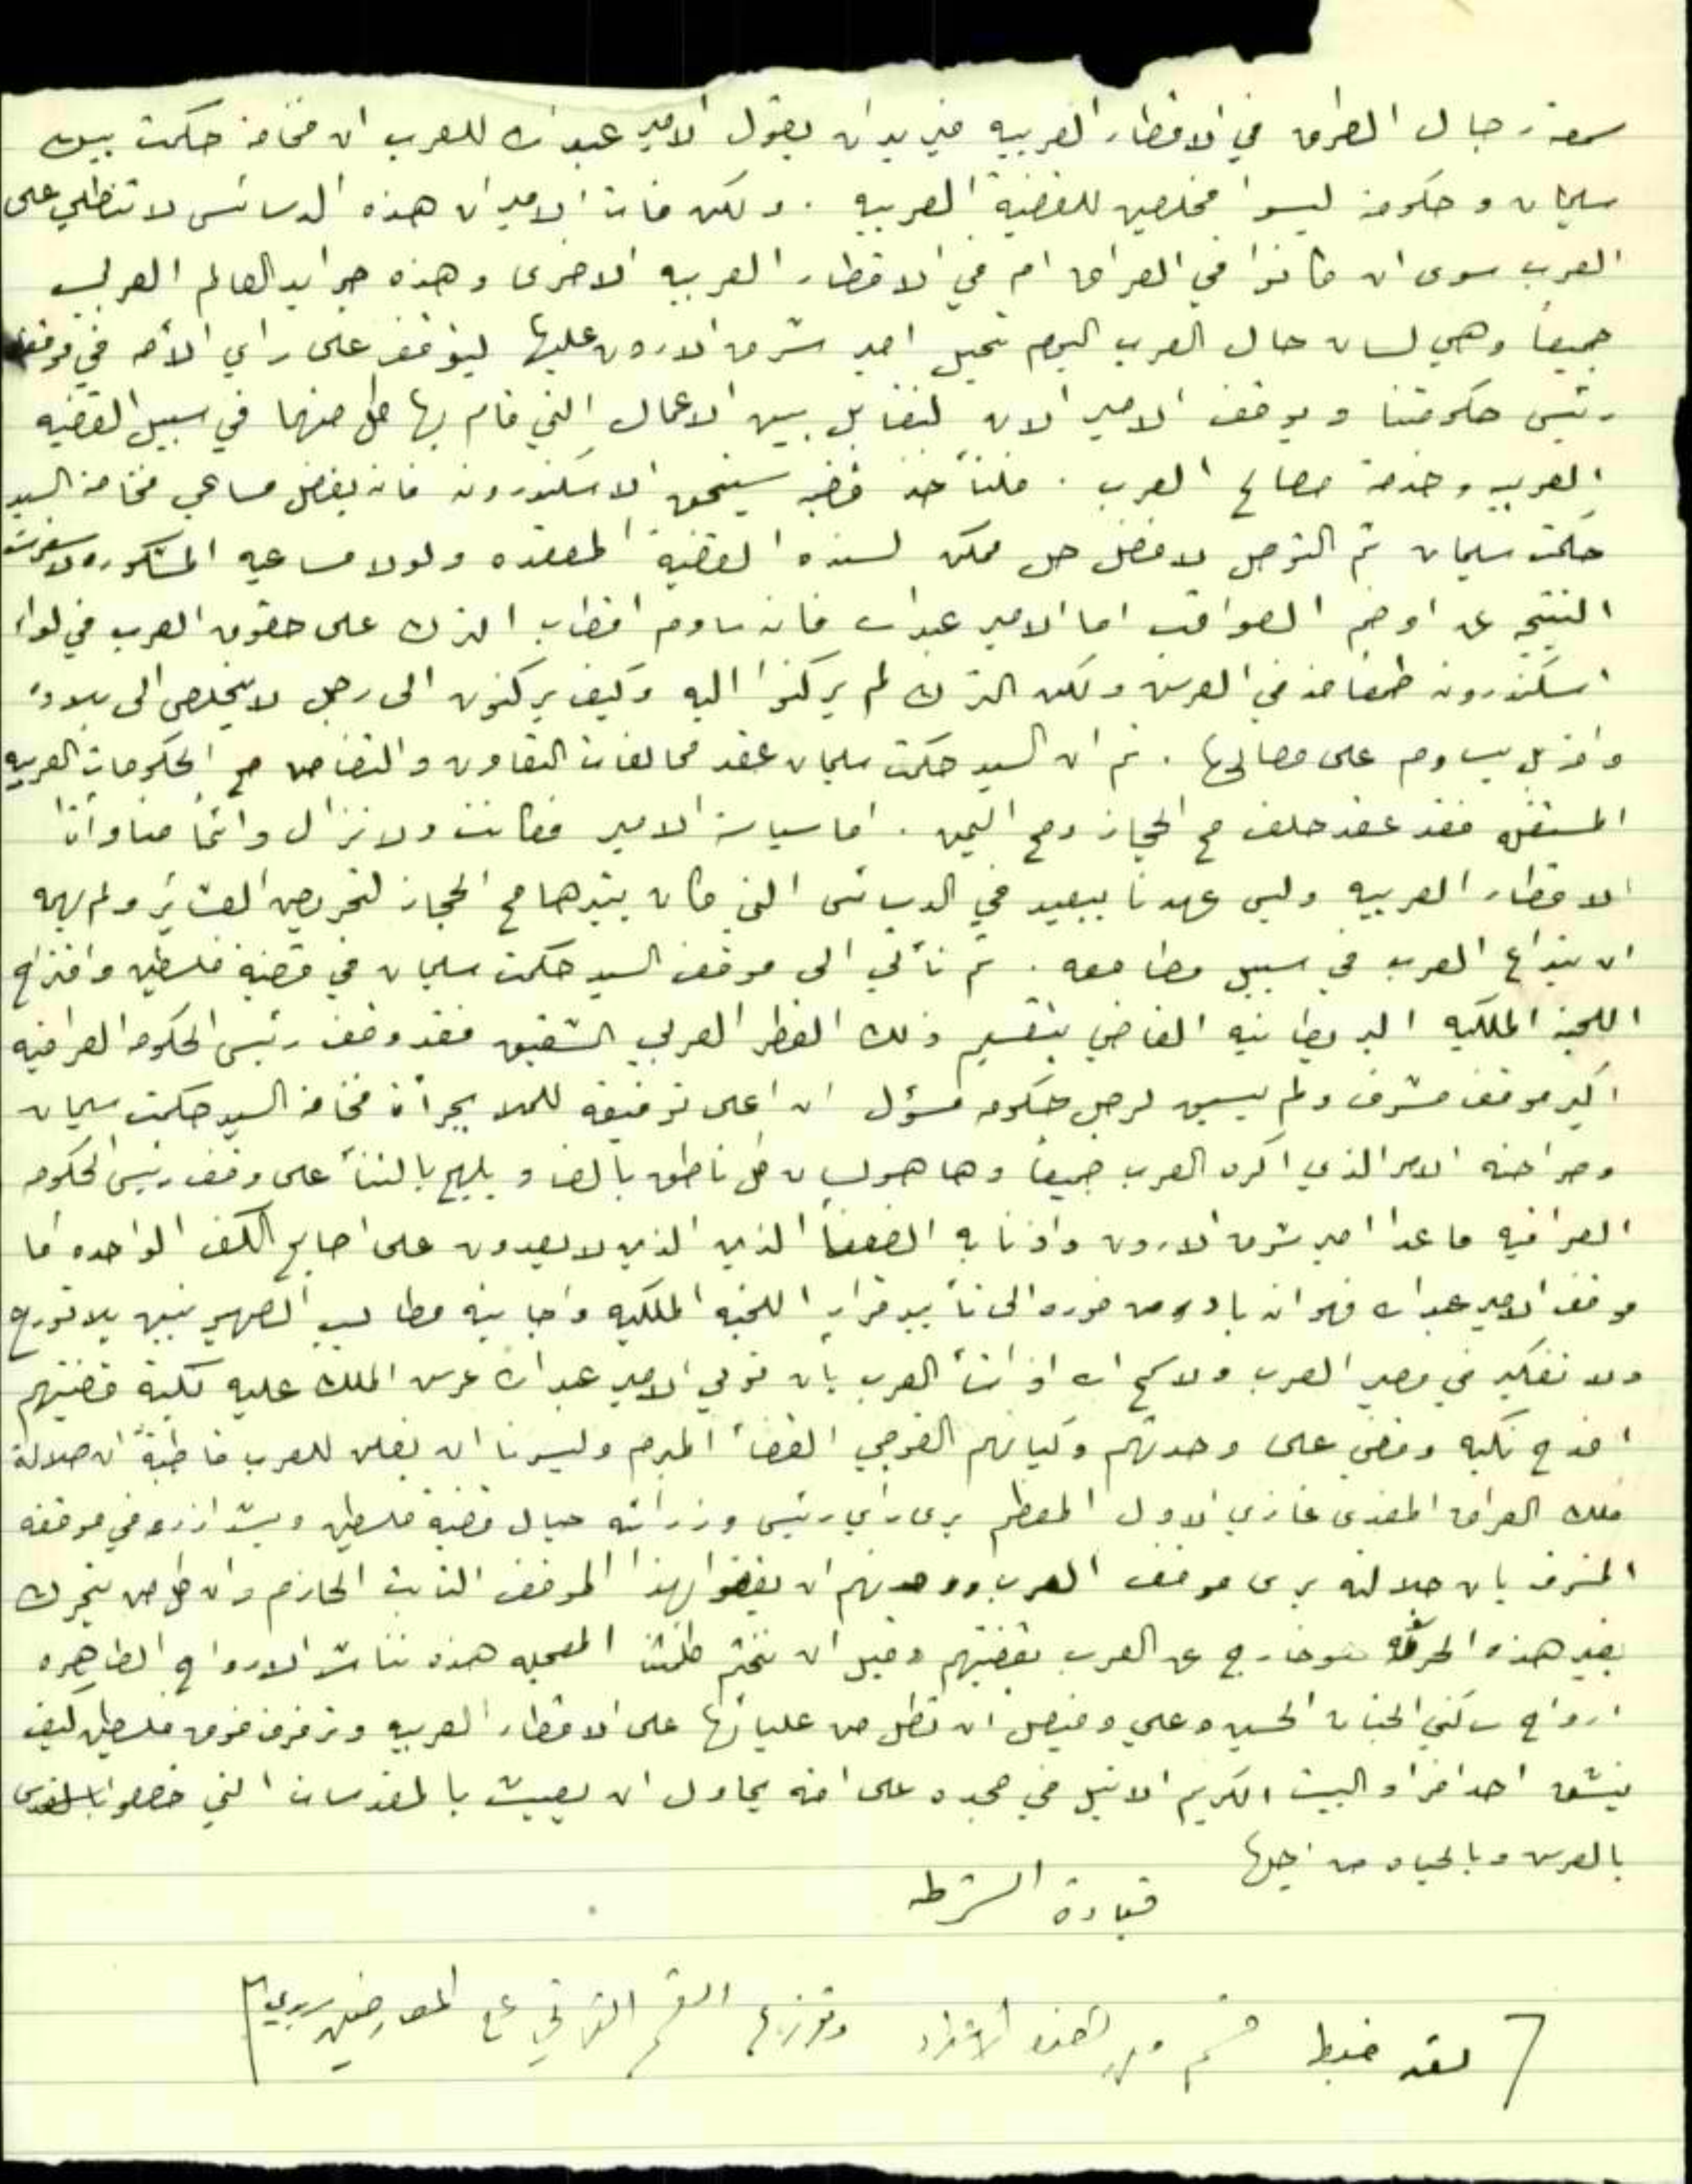 سمعة رجال العراق في الاقطار العربيه فيريد ان يقول الامير عبدالله للعرب ان فخامة حكمت بيك
سليمان وحكومته ليسوا مخلصين للقضية العربيه . ولكن فات الامير ان هذه الدسائس لا تنطلي على
العرب سوى ان كانوا في العراق ام في الاقطار العربيه الاخرى وهذه جرايد العالم العربي
جميعاً وهي لسان حال العرب اليوم نحيل امير شرق الاردن عليها ليتوقف على راي الأمه في موقف
رئيس حكومتنا وموقف الامير الان لنقابل بين الاعمال التي قام بها كل منهما في سبيل القضيه
العربيه وخدمة مصالح العرب . فلنأخذ قضيه سنجق الاسكندرونه فانه بفضل مساعي فخامة السيد
حكمت سليمان تم التوصل لافضل حل ممكن لهذه القضية المعقده ولولا مساعيه المشكوره لاسفرت
النتيجه عن اوخم العواقب اما الامير عبدالله فانه ساوم اقطاب الترك على حقوق العرب في لواء
اسكندرونه طمعا منه في العرش ولكن الترك لم يركنوا اليه وكيف يركنون الى رجل لا يخلص الى بلاده
واخذ يساوم على مصالحها . ثم ان السيد حكمت سليمان عقد محالفات التعاون والتضامن مع الحكومات العربيه
المستقله فقد عقد حلف مع الحجاز ومع اليمن . اما سياسة الامير فكانت ولا تزال دائماً مناوأة
الاقطار العربيه وليس عهدنا ببعيد في الدسائس التي كان يثيرها مع الحجاز لتحريض العشائر ولم يهمه
ان يتداع العرب في سبيل مطامعه . ثم نأتي الى موقف السيد حكمت سليمان في قضية فلسطين واقتراح
اللجنة الملكيه البريطانيه القاضي بتقسيم ذلك القطر العربي الشقيق فقد وقف رئيس الحكومه العراقيه
اكبر موقف مشرف ولم يسبق لرجل حكومه مسؤل ان اعلى توفيقه للملا بجرأة فخامة السيد حكمت سليمان
وصراحته الامر الذي اكره العرب جميعاً وها هو لسان كل ناطق بالضاد يلهج بالثنأ على وقف رئيس الحكومه
العراقيه ما عدا امير شرق الاردن واذنابه الضعفأ الذين الذين لا يعدون على اصابع الكف الواحده اما
موقف الامير عبدالله فهو انه بادر من فوره الى تأييد قرار اللجنه الملكيه واجابية مطاليب الصهيونيين بلا تورع
ولا تفكير في مصير العرب ولا سمح الله اذا شأ العرب بان تولي الامير عبدالله عرش الملك عليه نكبة قضيتهم
افدح نكبه وقضي على وحدتهم وكيانهم القومي القضأ المبرم وليسرنا ان نعلن للعرب قاطبةً ان جلالة
ملك العراق المفدى غازي الاول المعظم يرى راي رئيس وزرائه حيال قضية فلسطين ويشد ازره في موقفه
المشرف بان جلالته يرى موقف العرب ووحدتهم ان يقفوا بهذا الموقف الثابت الحازم وان كل من يتحرك
بغير هذه الحركه هو خارج عن العرب بقضيتهم وقبل ان نختم كلمتنا المعجله هذه نناشد الارواح الطاهره
ارواح ساكني الجنان الحسين وعلي وفيصل ان تطل من عليائها على الاقطار العربيه وترفرف فوق فلسطين كيف
ينشق احد افراد البيت الكريم الاثيل في مجده على امته يحاول ان يعبث بالمقدسات التي خصصوا
بالعرش وبالحياه من اجلها
قيادة الشرطه
لقد ضبط قسم من هذه الاوراق وتوزع القسم الثاني على المعارضين